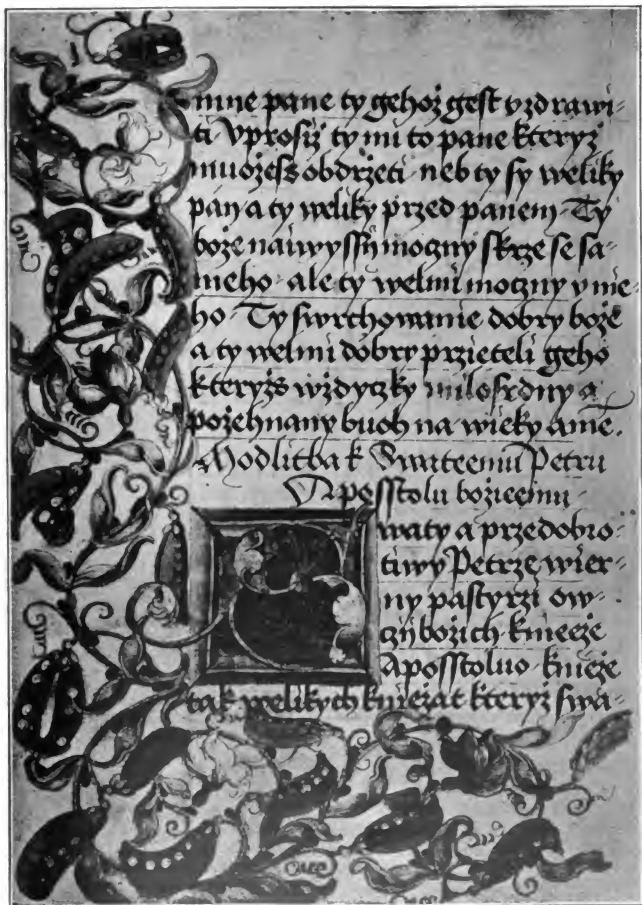 mne pane ty gehoż gest vzdrawi-
ti Vprosiż ty mi to pane kteryż
muożess obdrżeti neb ty sy weliky
pán a ty weliky przed panem Ty
boże nauwyssij mocny skrze se sa-
meho ale ty welmi mocny v nie-
ho Ty swrchowanie dobry boże
a ty welmi dobry przieteli geho
kteryżs wżdyczky milosrdny a
pożehnany buoh na wieky ame.
Modlitba k Swateemu Petru
Aposstolu bożieemu
waty a przedobro-
tiwy Petrze wier-
ny pastyrzi ow-
czij bożich knieże
Aposstoluo knieże
tak welikych knieżat kteryż swa-